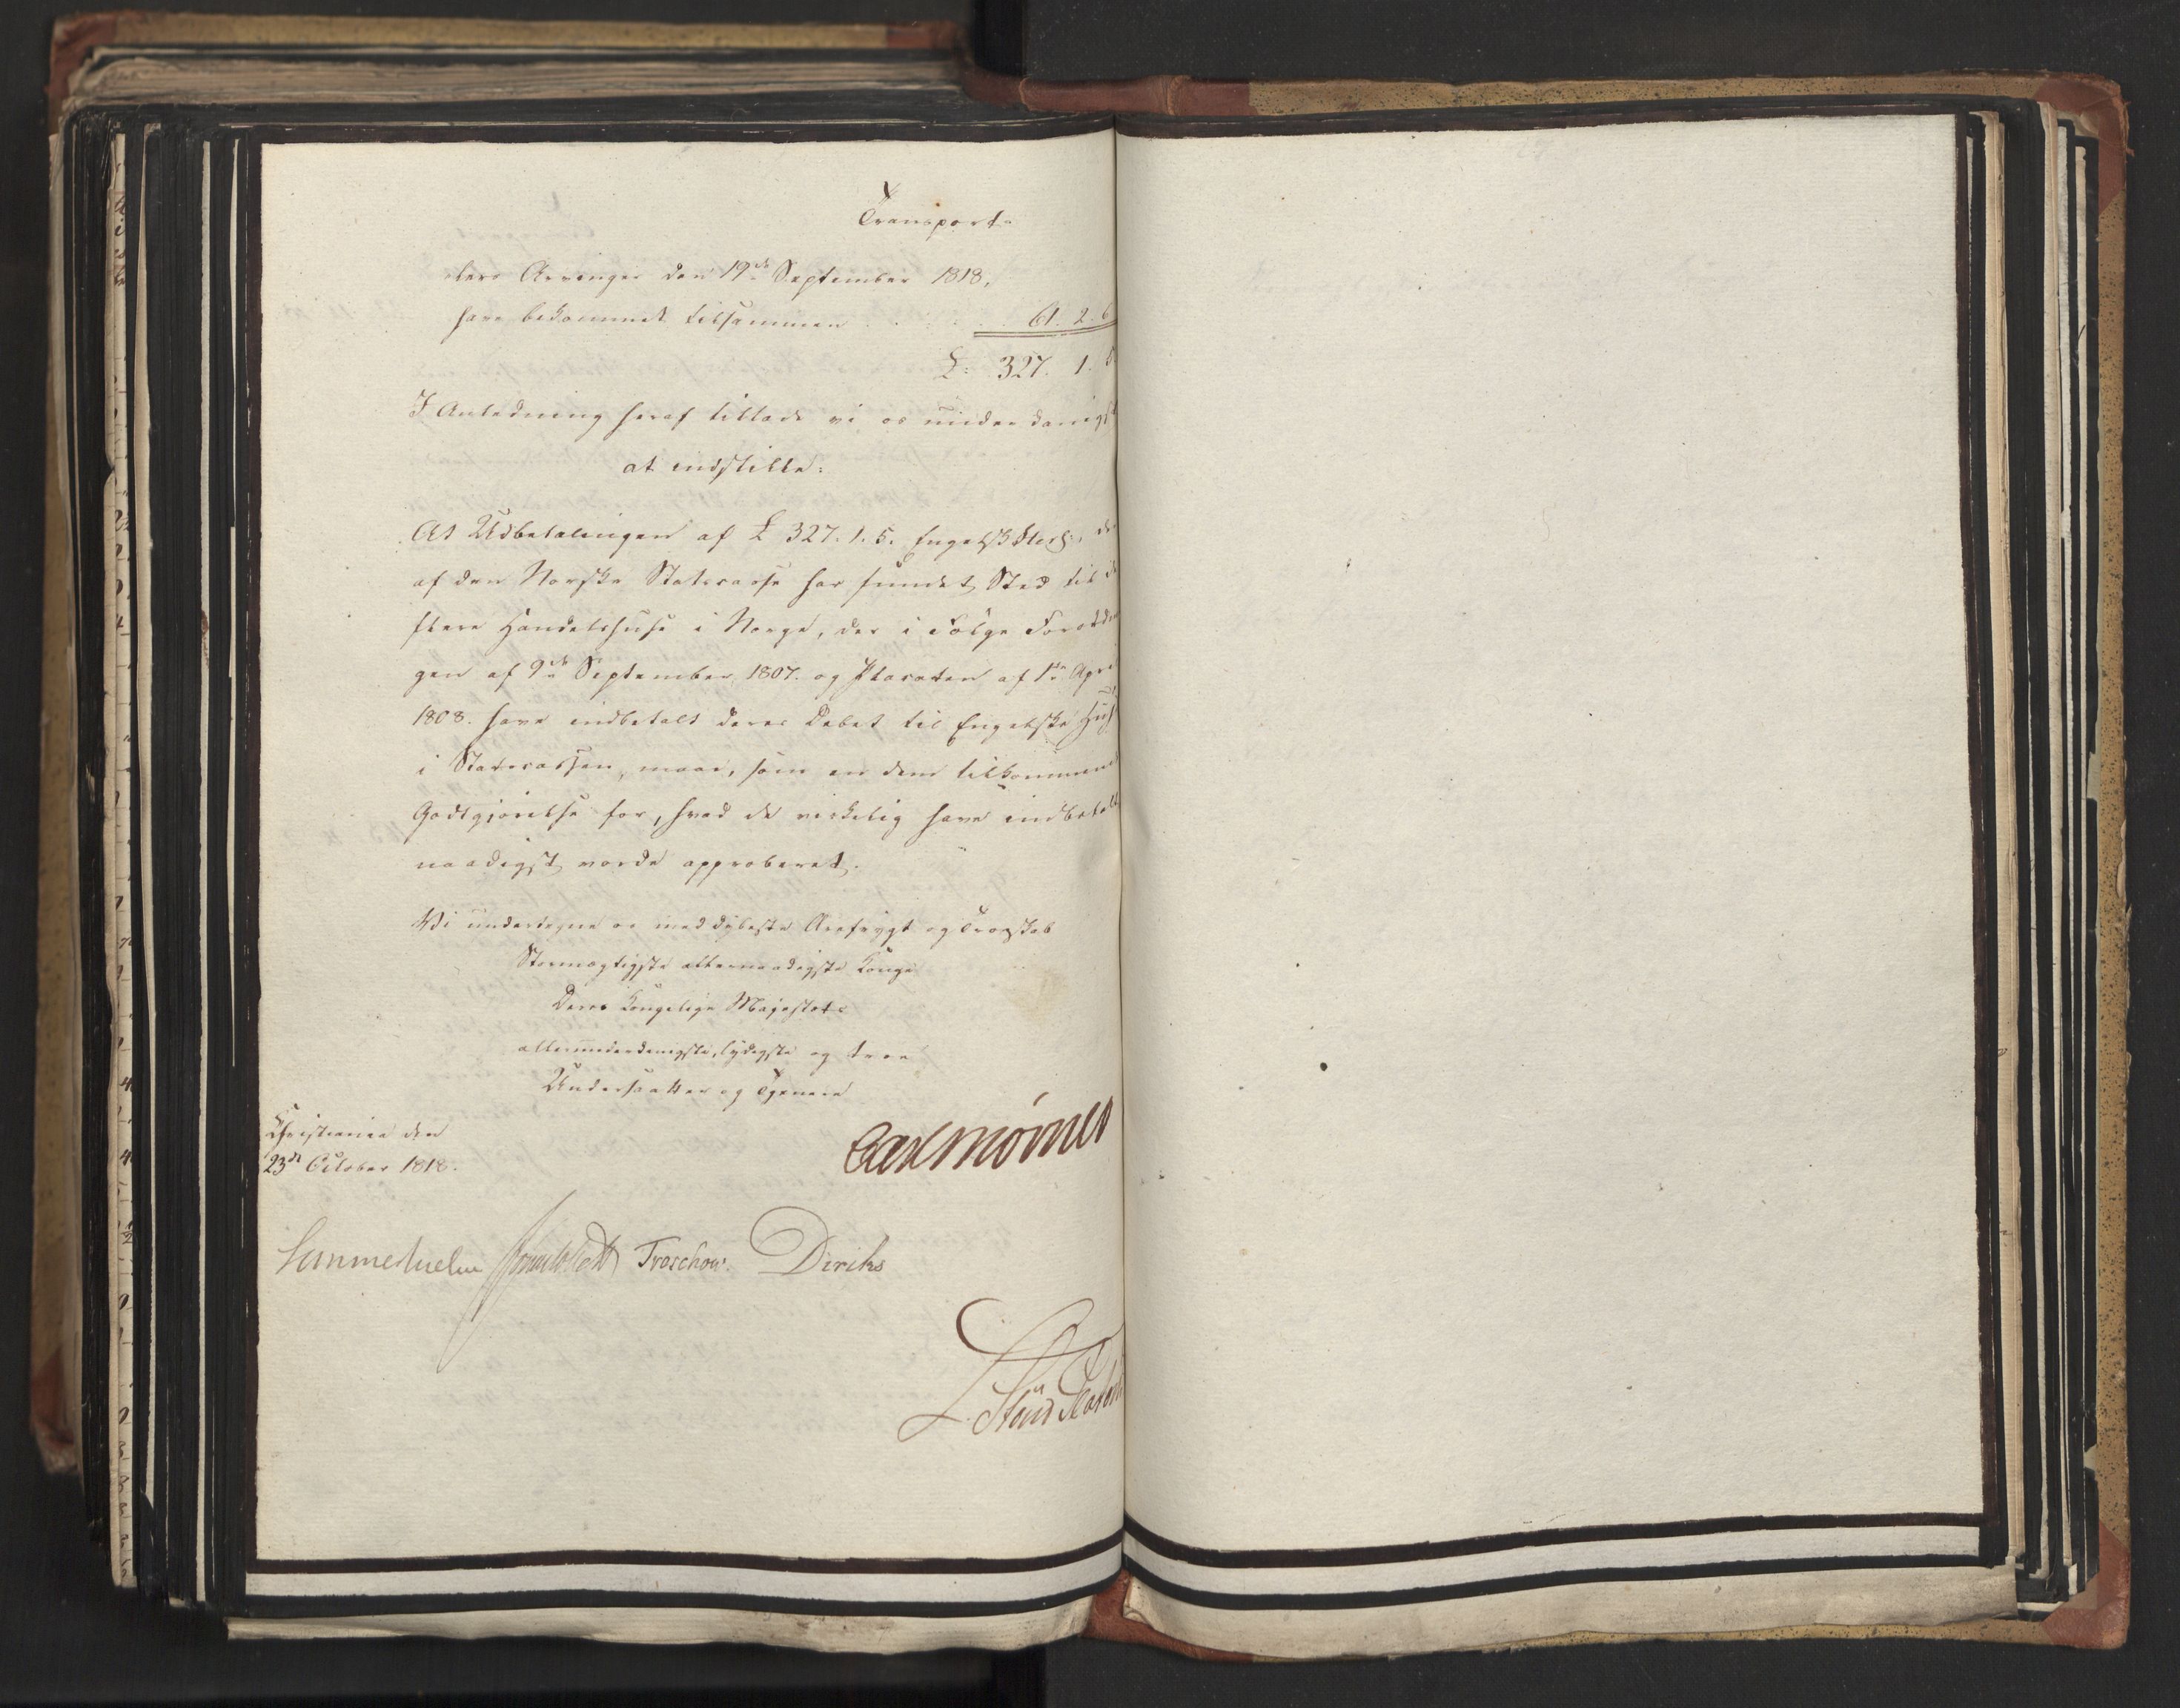 Transport
lers Arvinger den 19de September 1818,
have bekommet tilsammen . . . . . 61. 2. 6
£: 327. 1. 5
I Anledning heraf tillade vi os underdanigst
at indstille:
At Udbetalingen af £ 327. 1. 5. Engelsk Sterl:, der
af den Norske Statscasse har fundet Sted til de
flere Handelshuse i Norge, der i Følge Forordnin
gen af 9de September 1807. og Placaten af 1ste April
1808. have indbetalt deres Debet til Engelske Huse
i Statscassen, maae, som en dem tilkommende
Godtgjørelse for, hvad de virkelig have indbetalt
naadigst vorde approberet.
Vi undertegne os med dybeste Ærefrygt og Troeskab
Stormægtigste allernaadigste Konge
Deres Kongelige Majestæts
allerunderdanigste, lydigste og troe
Undersaatter og Tjenere
Christiania den
23de October 1818.
Carl Mörner
Sommerhielm Treschow. Diriks